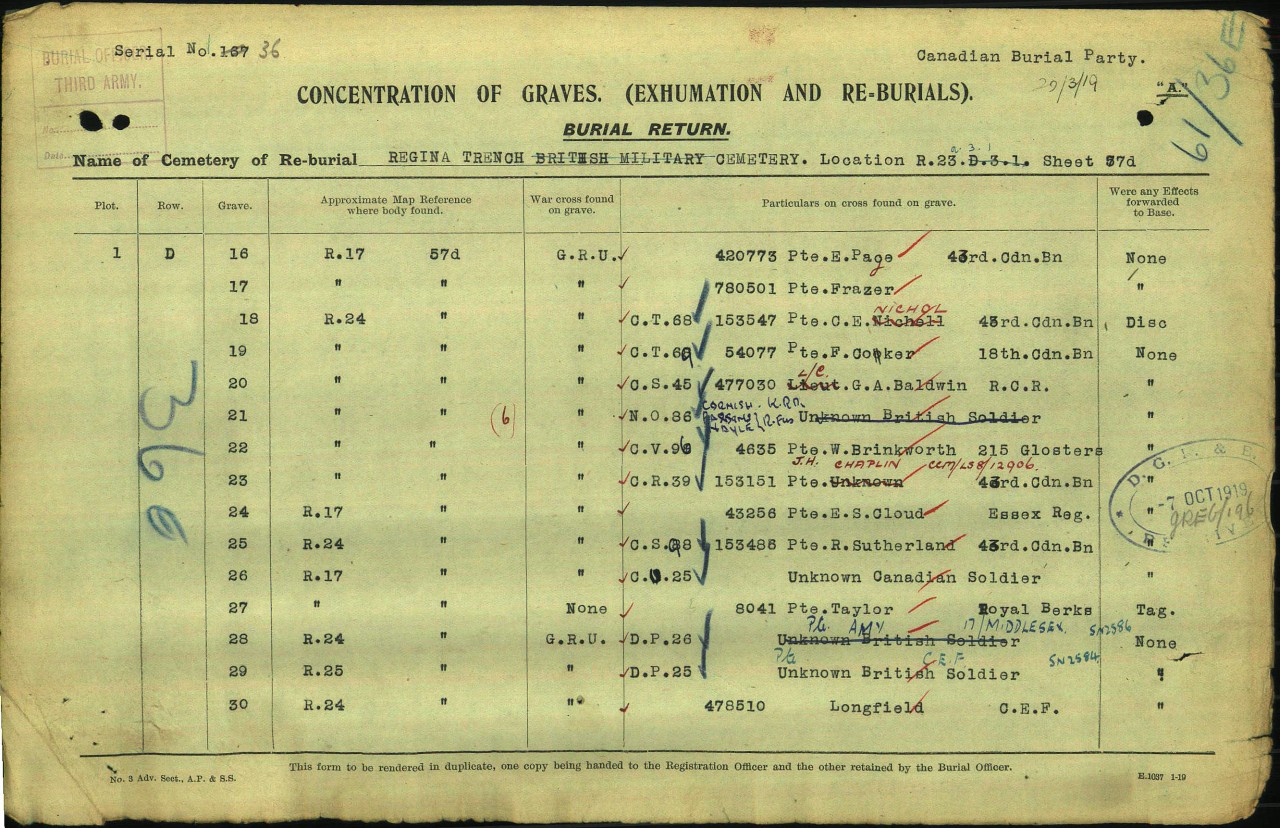 Serial No. 167 36
BURIAL OFFICER
THIRD ARMY.
Date
Canadian Burial Party.
20/3/19
"A."
61/36E
CONCENTRATION OF GRAVES. (EXHUMATION AND RE=BURIALS).
BURIAL RETURN.
a.3.1
Name of Cemetery of Re-burial REGINA TRENCH BRITISH MILITARY CEMETERY. Location R.23.D.3.1. Sheet 57d
Plot. Row. Grave. Approximate Map Reference where body found. War cross found on grave. Particulars on cross found on grave. Were any Effects forwarded to Base.
1 D 16 R.17 57d G.R.U. 420773 Pte.E.Page 43rd.Cdn.Bn None
17 " " " 780501 Pte.Frazer "
NICHOL
18 R.24 " " C.T.68 153547 Pte.C.E.Nichell 43rd.Cdn.Bn Disc
19 " " " C.T.69 54077 Pte.F.Cooker 18th.Cdn.Bn None
L/C.
20 " " " C.S.45 477030 Lieut.G.A.Baldwin R.C.R. "
CORNISH. K.R.R.
21 " " (6) " N.O.86 R.Fus Unknown British Soldier "
22 " " " C.V.96 4635 Pte.W.Brinkworth 215 Glosters "
J.H. CHAPLIN CCM/LS8/12906.
23 " " " C.R.39 153151 Pte.Unknown 43rd.Cdn.Bn "
24 R.17 " " 43256 Pte.E.S.Cloud Essex Reg. "
25 R.24 " " C.S.98 153486 Pte.R.Sutherland 43rd.Cdn.Bn "
26 R.17 " " C.U.25 Unknown Canadian Soldier "
27 " " None 8041 Pte.Taylor Royal Berks Tag.
Pte. AMY 17/MIDDLESEX. SN2586
28 R.24 " G.R.U. D.P.26 Unknown British Soldier None
Pte C.E.F. SN2584
29 R.25 " " D.P.25 Unknown British Soldier "
30 R.24 " " 478510 Longfield C.E.F. "
366
7 OCT 1919
No. 3 Adv. Sect., A.P. & S.S.
This form to be rendered in duplicate, one copy being handed to the Registration Officer and the other retained by the Burial Officer.
H.1037 1-19